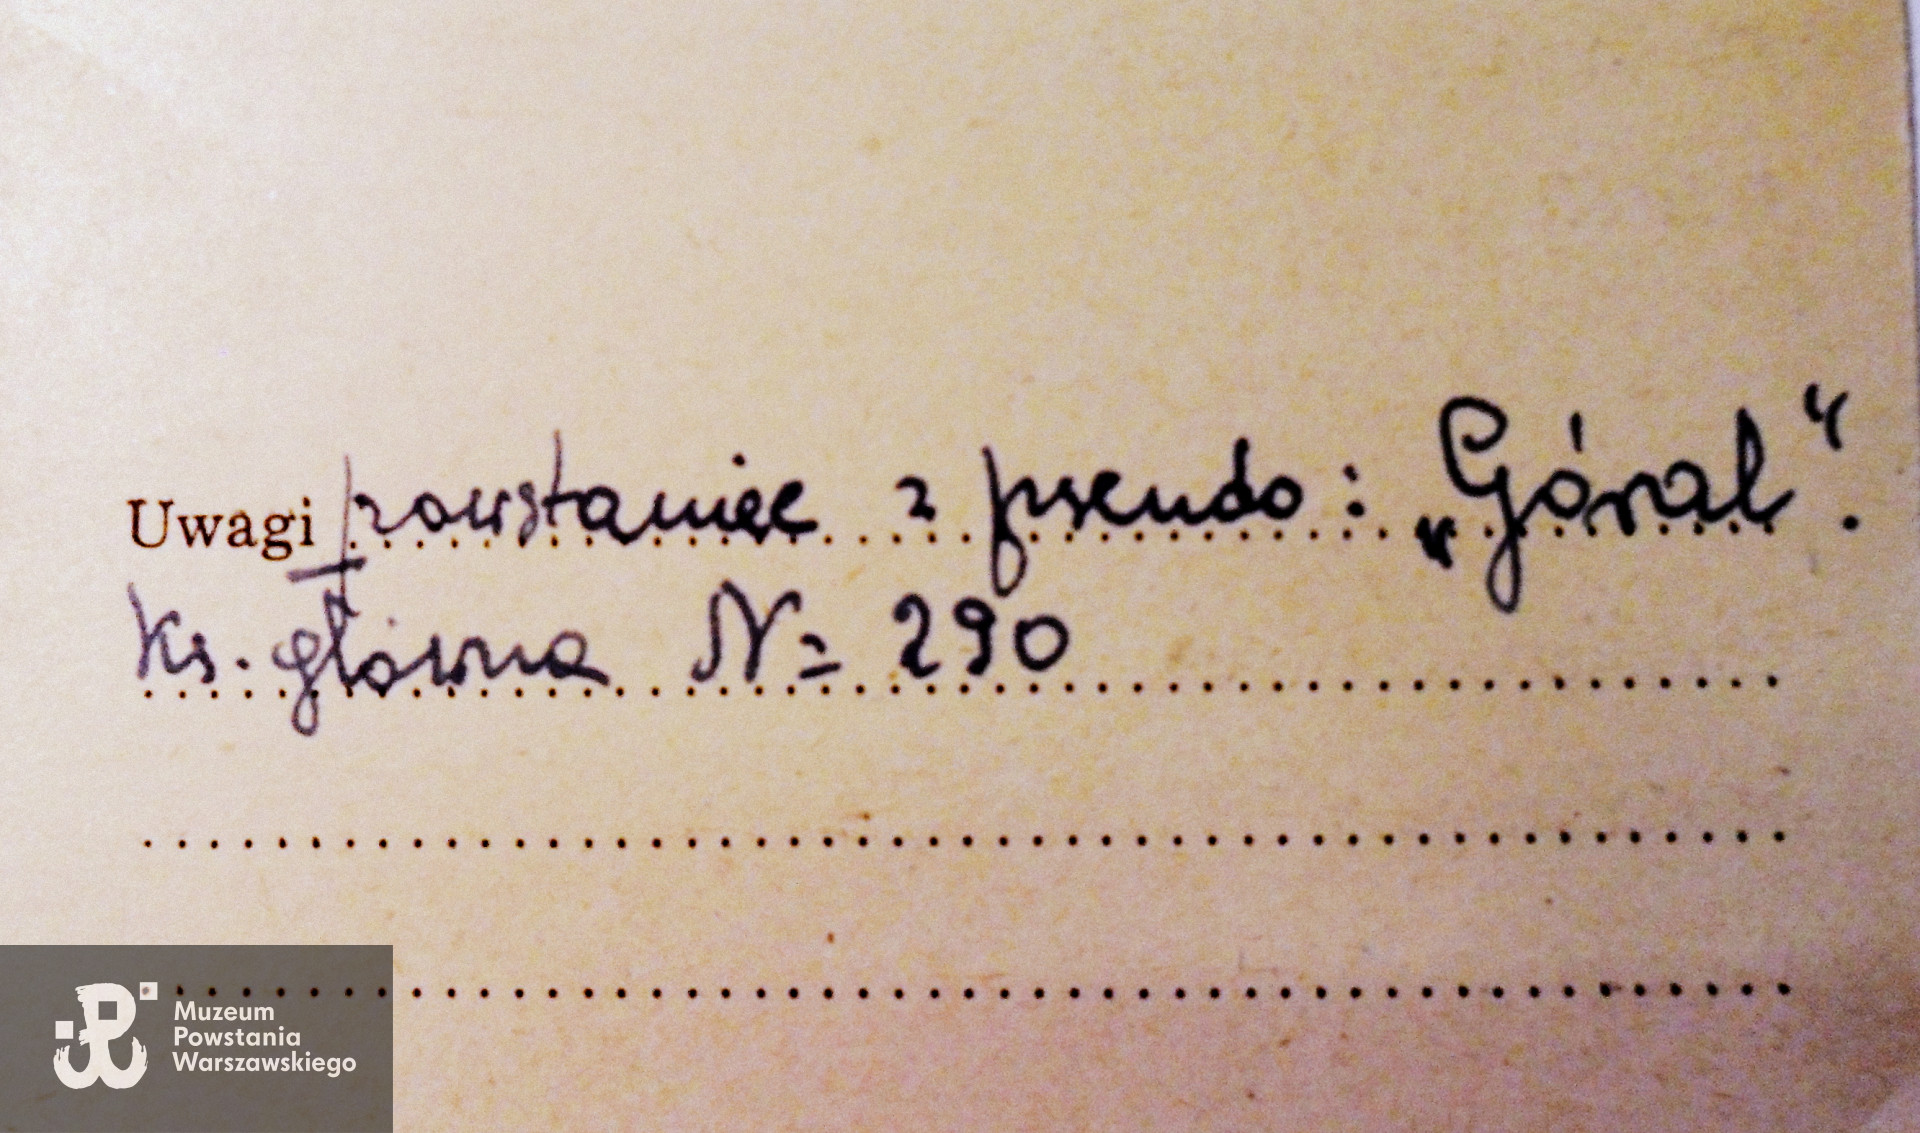 Uwagi powstaniec z pseudo: „Góral“.
Ks. główna N= 290
Muzeum
Powstania
Warszawskiego